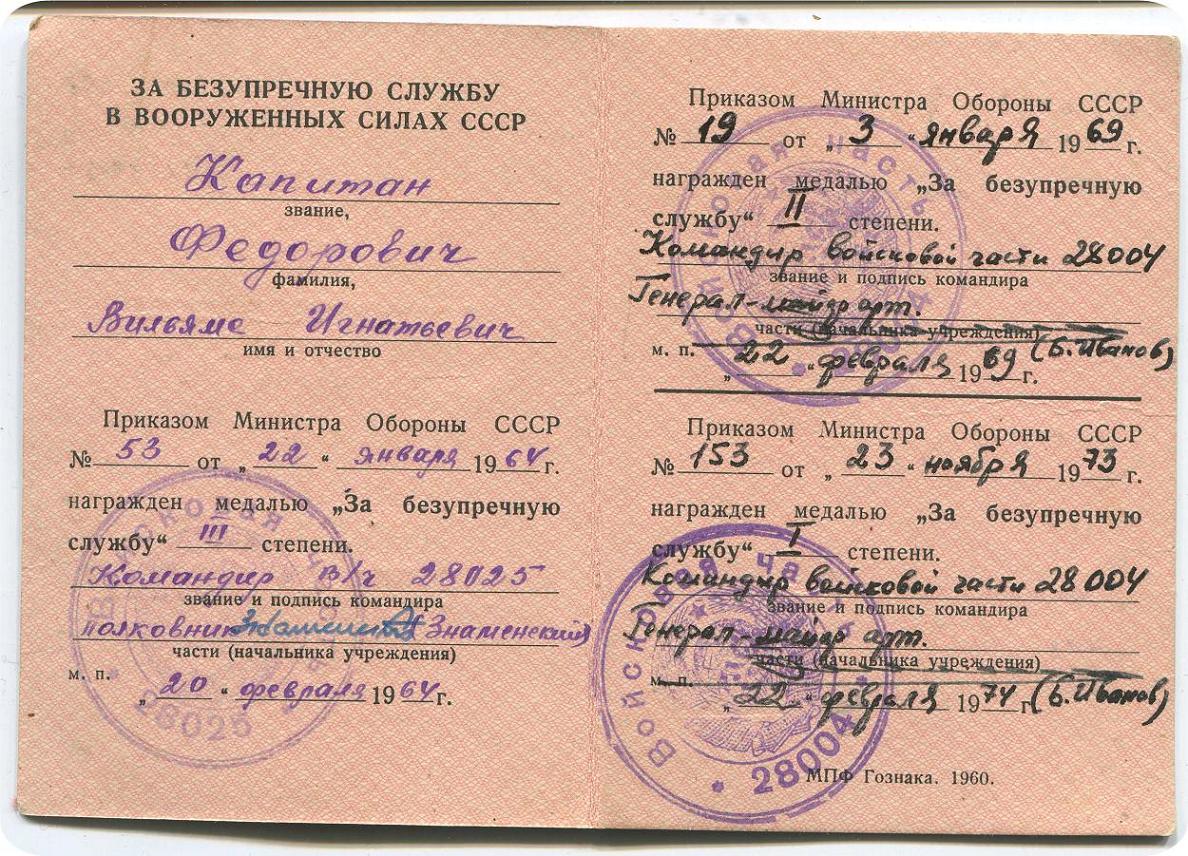 ЗА БЕЗУПРЕЧНУЮ СЛУЖБУ
В ВООРУЖЕННЫХ СИЛАХ СССР
Капитан
звание,
Федорович
фамилия,
Вильямс Игнатьевич
имя и отчество
Приказом Министра Обороны СССР
№ 53 от „22“ января 1964 г.
награжден медалью „За безупречную
службу“ III степени.
Командир в/ч 28025
звание и подпись командира
полковник (Знаменский)
части (начальника учреждения)
м. п.
„20“ февраля 1964 г.
Войсковая
28025
Приказом Министра Обороны СССР
№ 19 от „3“ января 1969 г.
награжден медалью „За безупречную
службу“ II степени.
Командир войсковой части 28004
звание и подпись командира
Генерал-майор арт.
части (начальника учреждения)
м. п. „22“ февраля 1969 г. (Б. Иванов)
Войсковая часть
Приказом Министра Обороны СССР
№ 153 от „23“ ноября 1973 г.
награжден медалью „За безупречную
службу“ I степени.
Командир войсковой части 28004
звание и подпись командира
Генерал-майор арт.
части (начальника учреждения)
м. п. „22“ февраля 1974 г. (Б. Иванов)
Войсковая часть
28004
МПФ Гознака. 1960.